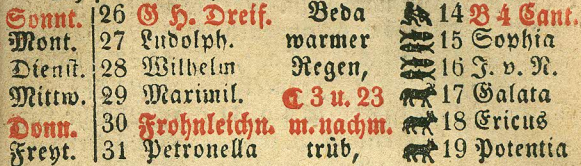 Sonnt. 26 G H. Dreif. Beda 14 B 4 Cant.
Mont. 27 Ludolph. warmer 15 Sophia
Dienst. 28 Wilhelm Regen, 16 J. v. N.
Mittw. 29 Maximil. ☾ 3 u. 23 17 Galata
Donn. 30 Frohnleichn. m. nachm. 18 Ericus
Freyt. 31 Petronella trüb, 19 Potentia